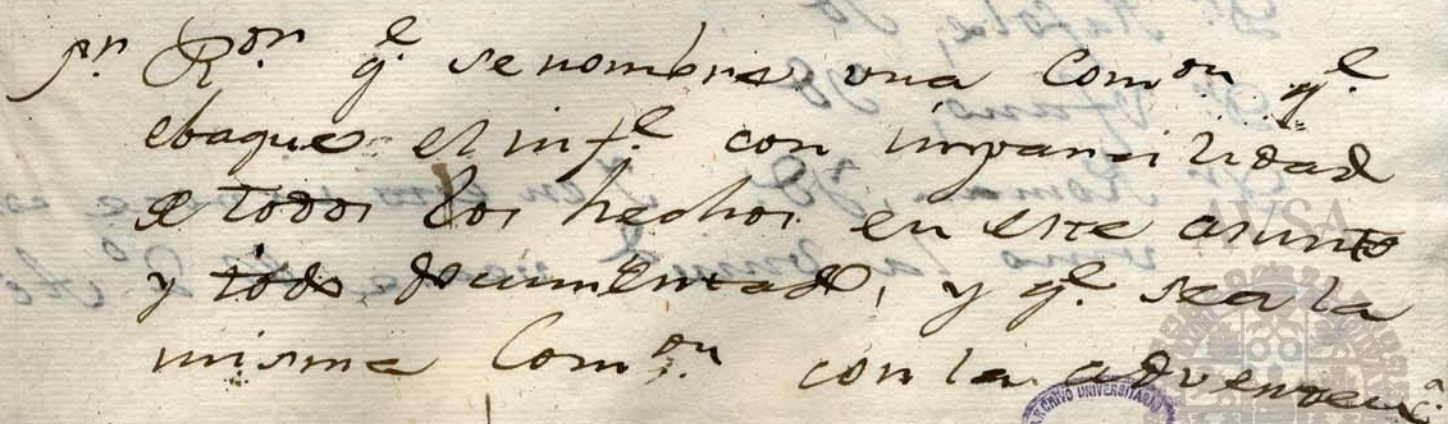 Sr. Ron. q.e se nombre una Com.on q.e
ebaque el inf.e con imparcialidad
de todos los hechos en este asunto
y todo documentado, y q.e sea la
misma Com.on con la advertenc.a
AVSA
ARCHIVO UNIVERSITARIO